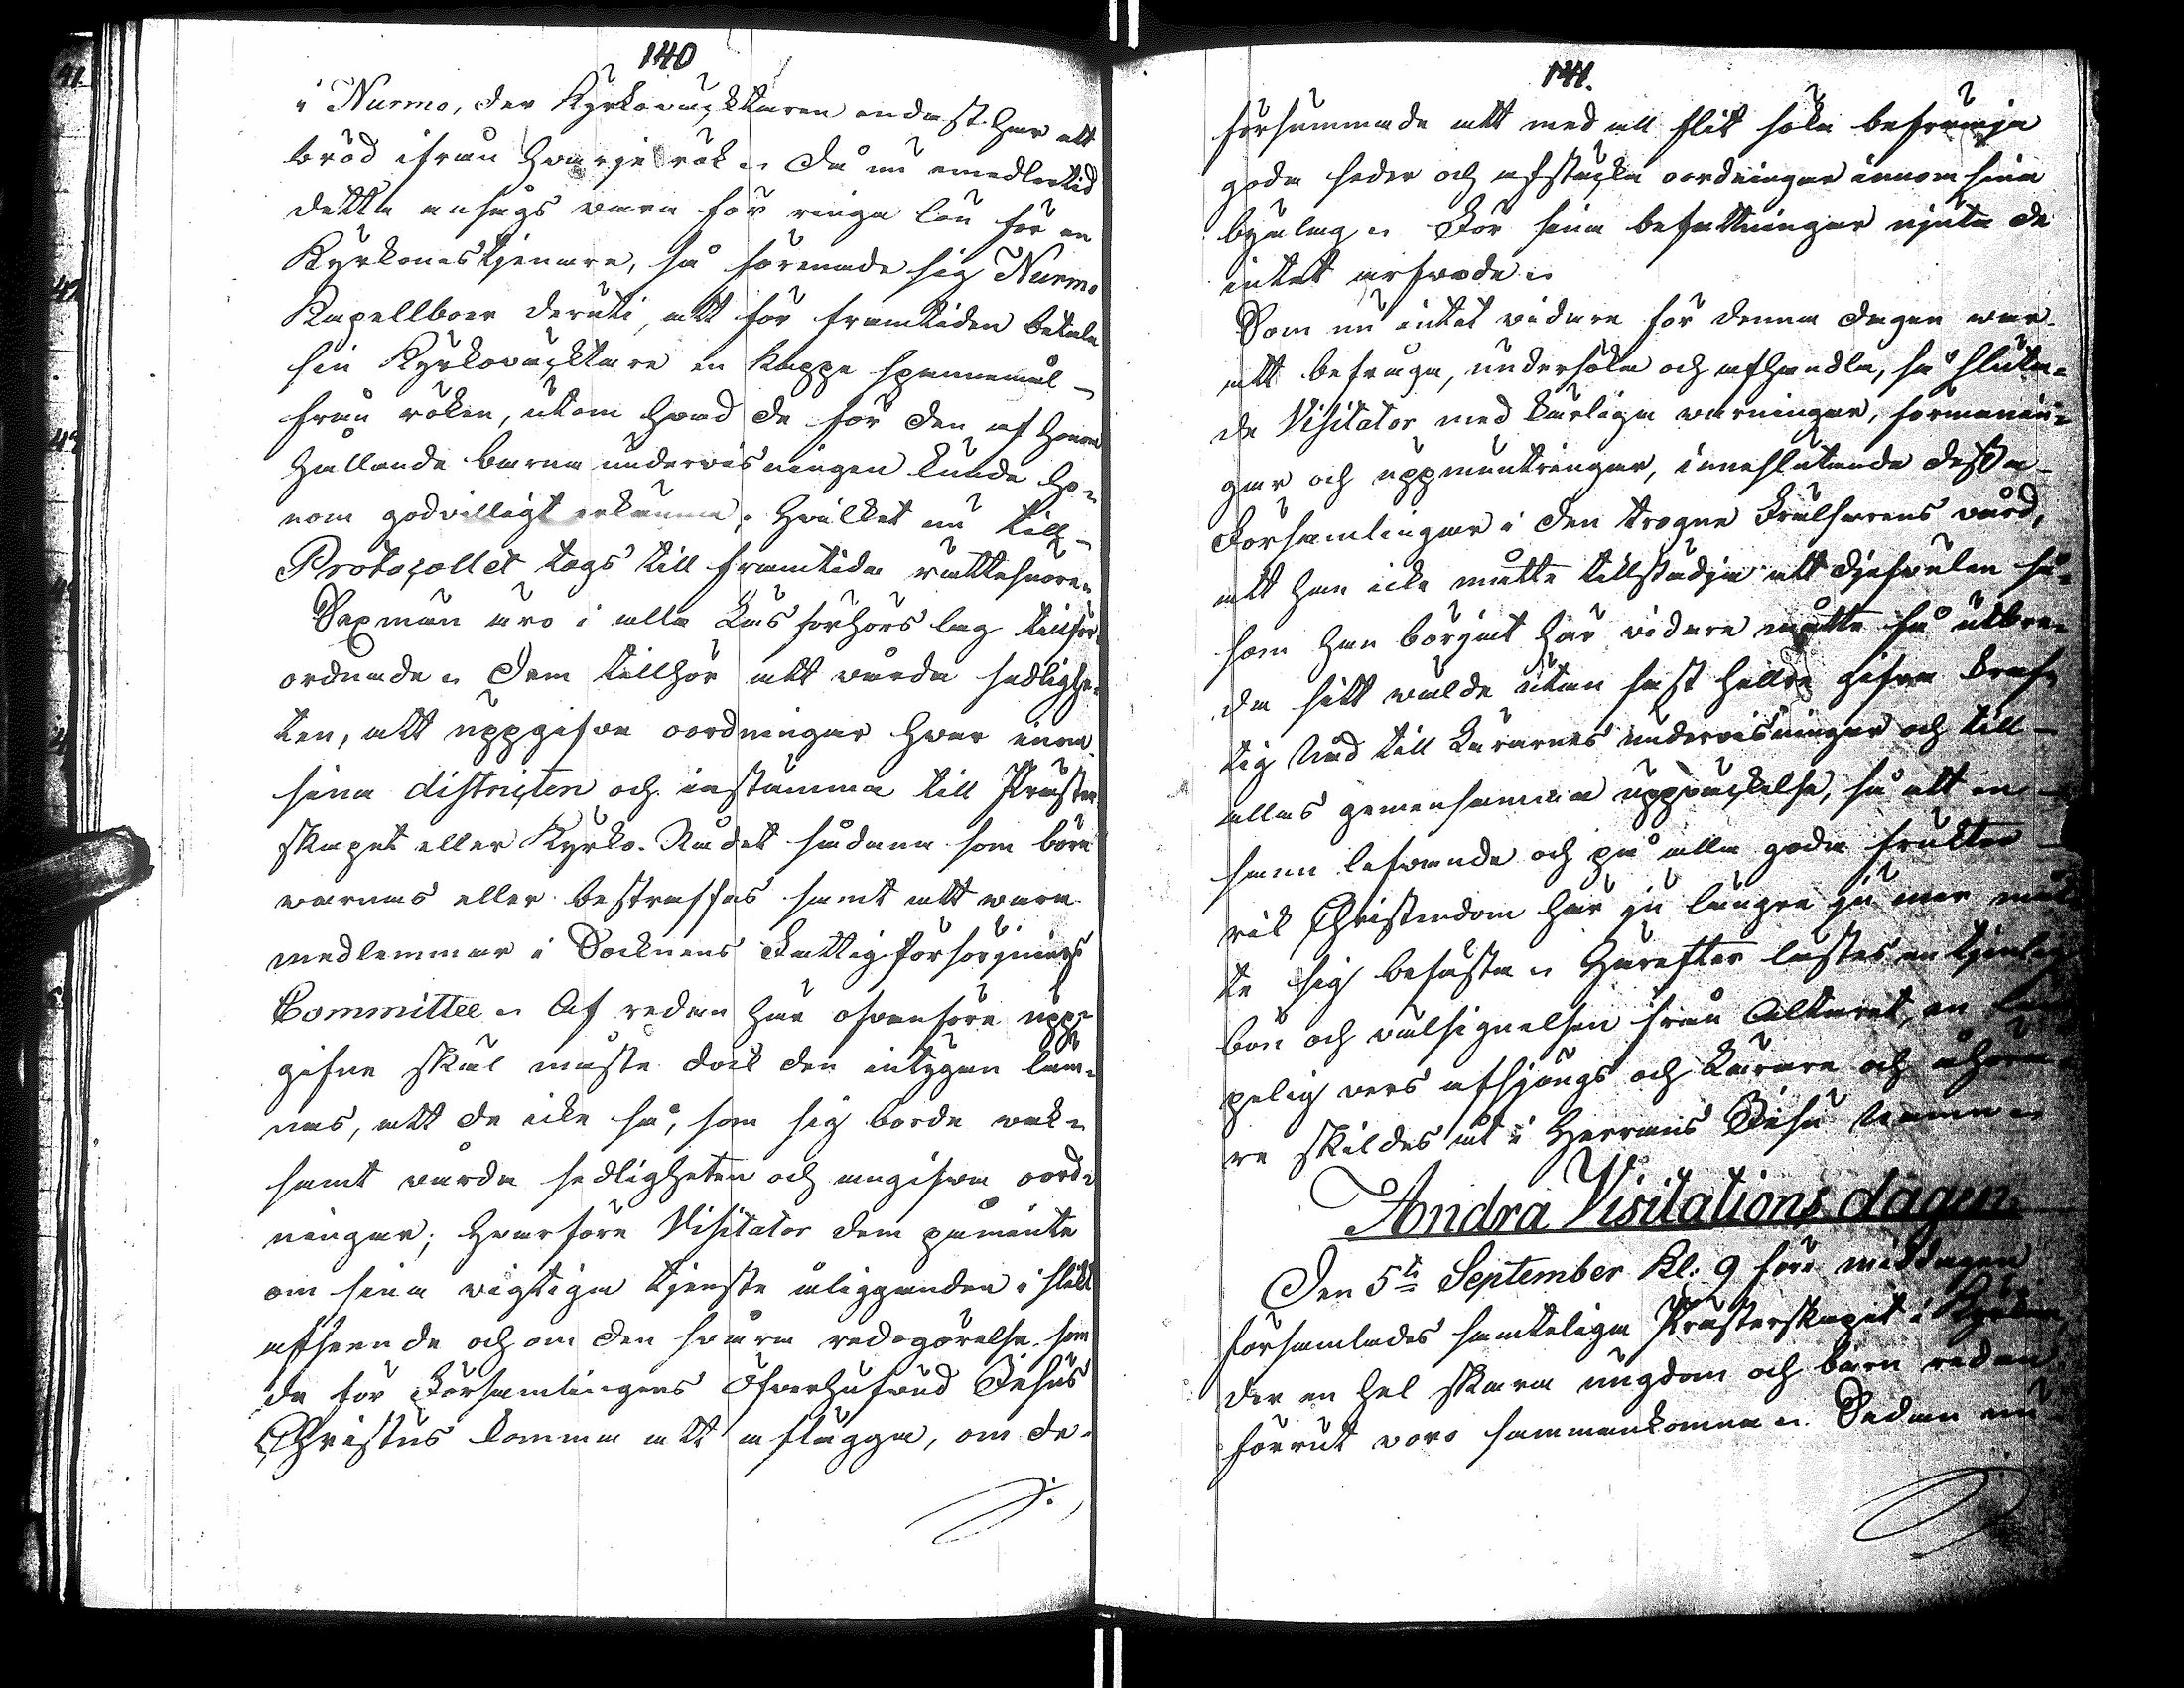 140
i Nurmo, der Kyrkovacktaren endast har ett
bröd ifrån hvarje rök. Då nu emedlertid
detta ansågs vara för ringa lön för en
Kyrkones tjenare, så förenade sig Nurmo
Kapellboer deruti, att för framtiden betala
sin Kyrkovacktare en kappe spannemål
från röken, utom hvad de för den af honom
hållande barna undervisningen kunde ho-
nom godvilligt erkänna; hvilket nu till
Protocollet togs till framtida rättesnöre.
Sexmän äro i alla Läsförhörs lag tillför-
ordnade. Dem tillhör att vårda sedlighe-
ten, att uppgifva oordningar hvar inom
sina districten och instämma till Präster
skapet eller Kyrko-Rådet sådana som böra
varnas eller bestraffas samt att vara
medlemmar i Socknens Fattigförsörjnings
Committee. Af redan här ofvanföre upp-
gifne skäl måste dock den intygan läm-
nas, att de icke så, som sig borde vak-
samt vårda sedligheten och angifva oord-
ningar; hvarföre Visitator dem påminte
om sina vigtiga tjenste åligganden i slikt
afseende och om den svåra redogörelse som
de för Församlingens Öfverhufvud Jesus
Christus komma att aflägga, om de
141.
försummade att med all flit söka befrämja
goda seder och afstäcka oordningar innom sina
byalag. För sina befattningar njuta de
intet arfvode.
Som nu intet vidare för denna dagen var
att befråga, undersöka och afhandla, så sluta-
de Visitator med kärliga varningar, förmanin-
gar och uppmuntringar, inneslutande dessa
Församlingar i den trogne Frälsarens vård,
att han icke måtte tillstädja att djefvulen så-
som han börjat här vidare måtte få utbre-
da sitt välde utan fast hellre gifva kraf-
tig Nåd till Lärarnes undervisningar och till
allas gemensamma uppväckelse, så att en
sann lefvande och på alla goda frukter
rik Christendom här ju längre ju mer måt-
te sig befästa. Härefter lästes en tjenlig
bön och välsignelsen från Altaret, en läm-
pelig vers afsjöngs och Lärare och åhöra-
re skildes åt i Herrans Jesu Namn.
Andra Visitations dagen.
Den 5te September Kl: 9 före middagen
församlades samtelige Prästerskapet i Kyrkan,
der en hel skara ungdom och barn redan
förrut voro sammankomna. Sedan nu